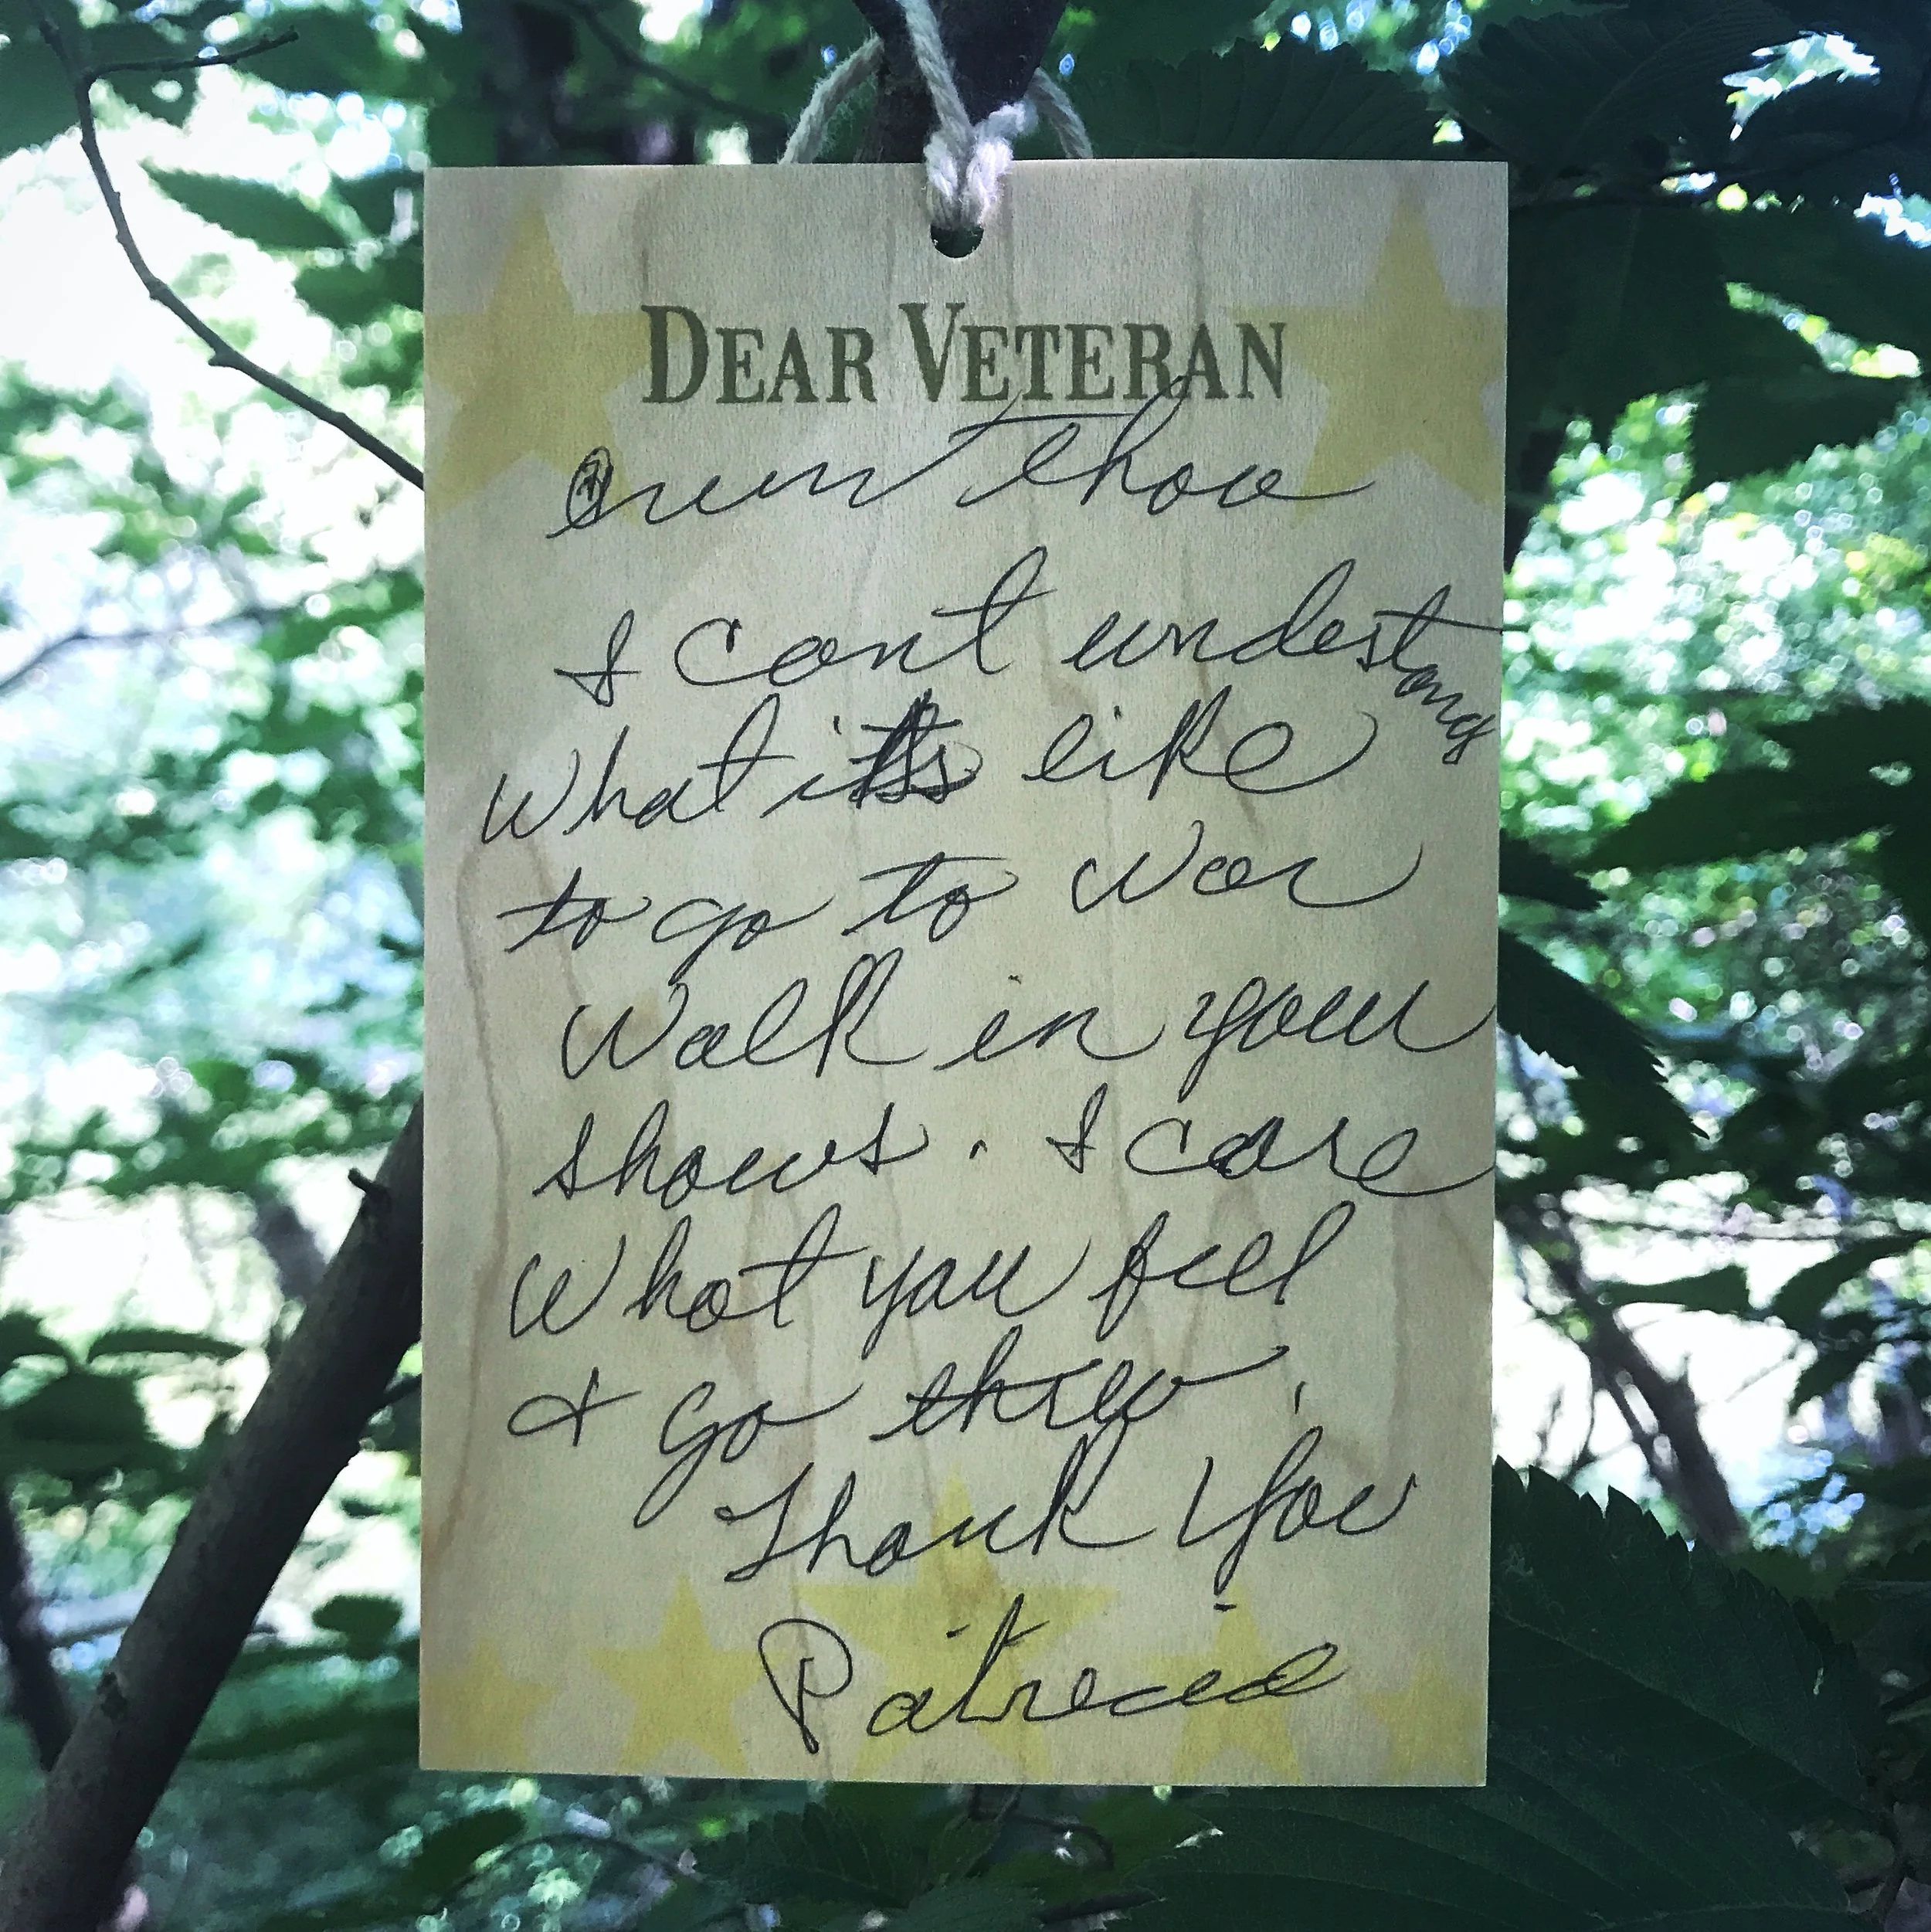 DEAR VETERAN
even thou
I cant undestang
what it's like
to go to war
Walk in your
shows. I care
What you feel
+ go threw,
Thank You
Patricia